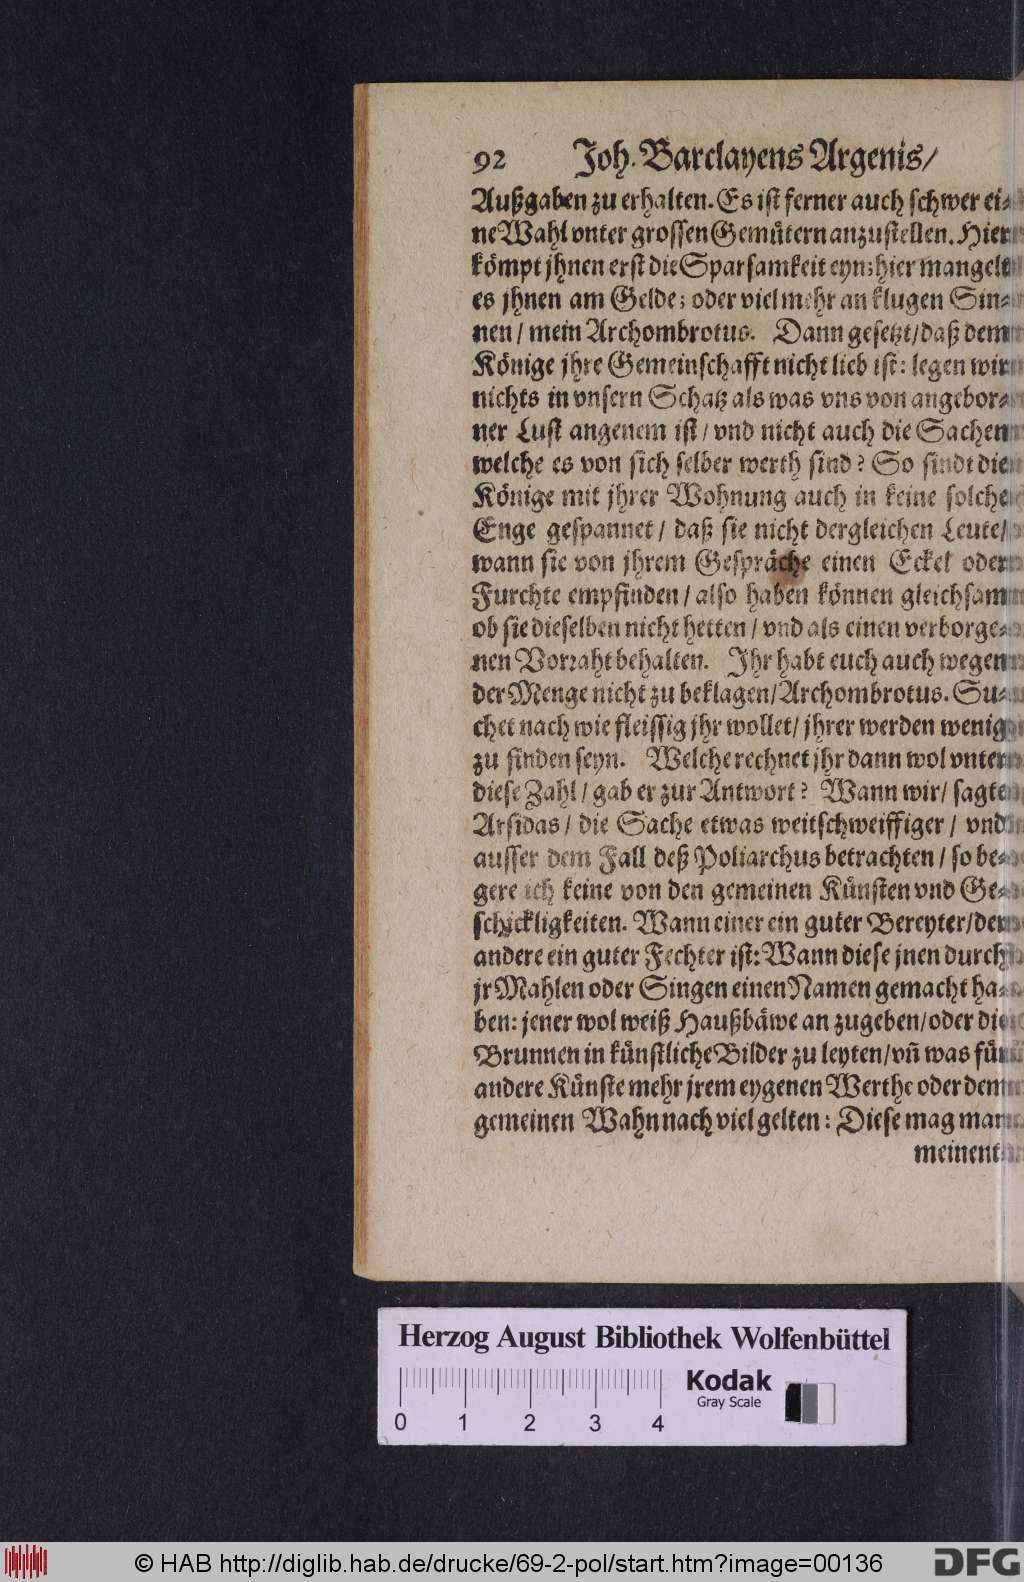 92 Joh. Barclayens Argenis/
Außgaben zu erhalten. Es ist ferner auch schwer ei⸗
ne Wahl vnter grossen Gemütern anzustellen. Hier
kömpt jhnen erst die Sparsamkeit eyn; hier mangelt
es jhnen am Gelde; oder viel mehr an klugen Sin⸗
nen / mein Archombrotus. Dann gesetzt / daß dem
Könige jhre Gemeinschafft nicht lieb ist: legen wir
nichts in vnsern Schatz als was vns von angebor⸗
ner Lust angenem ist / vnd nicht auch die Sachen
welche es von sich selber werth sind? So sindt die
Könige mit jhrer Wohnung auch in keine solche
Enge gespannet / daß sie nicht dergleichen Leute /
wann sie von jhrem Gespräche einen Eckel oder
Furchte empfinden / also haben können gleichsam
ob sie dieselben nicht hetten / vnd als einen verborge⸗
nen Vorꝛaht behalten. Jhr habt euch auch wegen
der Menge nicht zu beklagen / Archombrotus. Su⸗
chet nach wie fleissig jhr wollet / jhrer werden wenig
zu finden seyn. Welche rechnet jhr dann wol vnter
diese Zahl / gab er zur Antwort? Wann wir / sagte
Arsidas / die Sache etwas weitschweiffiger / vnd
ausser dem Fall deß Poliarchus betrachten / so be⸗
gere ich keine von den gemeinen Künsten vnd Ge⸗
schickligkeiten. Wann einer ein guter Bereyter / der
andere ein guter Fechter ist: Wann diese jnen durch
jr Mahlen oder Singen einen Namen gemacht ha⸗
ben: jener wol weiß Haußbäwe an zugeben / oder die
Brunnen in künstliche Bilder zu leyten / vñ was für
andere Künste mehr jrem eygenen Werthe oder dem
gemeinen Wahn nach viel gelten: Diese mag man
meinent⸗
Herzog August Bibliothek Wolfenbüttel
0 1 2 3 4
Kodak
Gray Scale
© HAB http://diglib.hab.de/drucke/69-2-pol/start.htm?image=00136
DFG